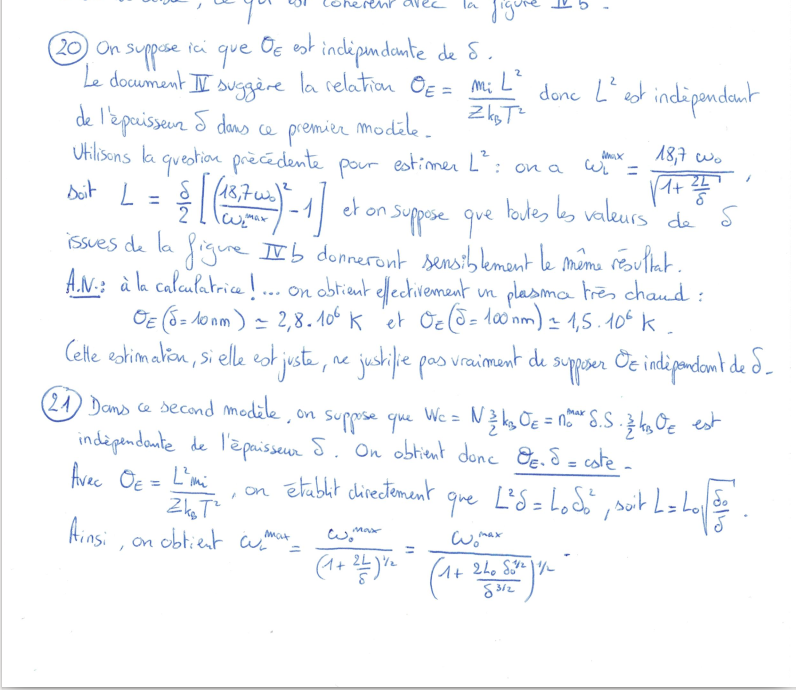 ce qui est cohérent avec la figure IV b.
20) On suppose ici que Θ_E est indépendante de δ.
Le document IV suggère la relation Θ_E = m_i L² / Z k_B T² donc L² est indépendant
de l'épaisseur δ dans ce premier modèle.
Utilisons la question précédente pour estimer L² : on a ω_L^max = 18,7 ω_0 / √(1 + 2L/δ) ,
soit L = δ/2 [ (18,7 ω_0 / ω_L^max)² - 1 ] et on suppose que toutes les valeurs de δ
issues de la figure IV b donneront sensiblement le même résultat.
A.N. : à la calculatrice !... on obtient effectivement un plasma très chaud :
Θ_E (δ = 10 nm) ≃ 2,8.10⁶ K et Θ_E (δ = 100 nm) ≃ 1,5.10⁶ K.
Cette estimation, si elle est juste, ne justifie pas vraiment de supposer Θ_E indépendant de δ.
21) Dans ce second modèle, on suppose que W_c = N 3/2 k_B Θ_E = n_0^max δ.S. 3/2 k_B Θ_E est
indépendante de l'épaisseur δ. On obtient donc Θ_E.δ = cste.
Avec Θ_E = L² m_i / Z k_B T² , on établit directement que L²δ = L_0 δ_0² , soit L = L_0 √(δ_0/δ) .
Ainsi, on obtient ω_L^max = ω_0^max / (1 + 2L/δ)^1/2 = ω_0^max / (1 + 2L_0 δ_0^1/2 / δ^3/2)^1/2 .